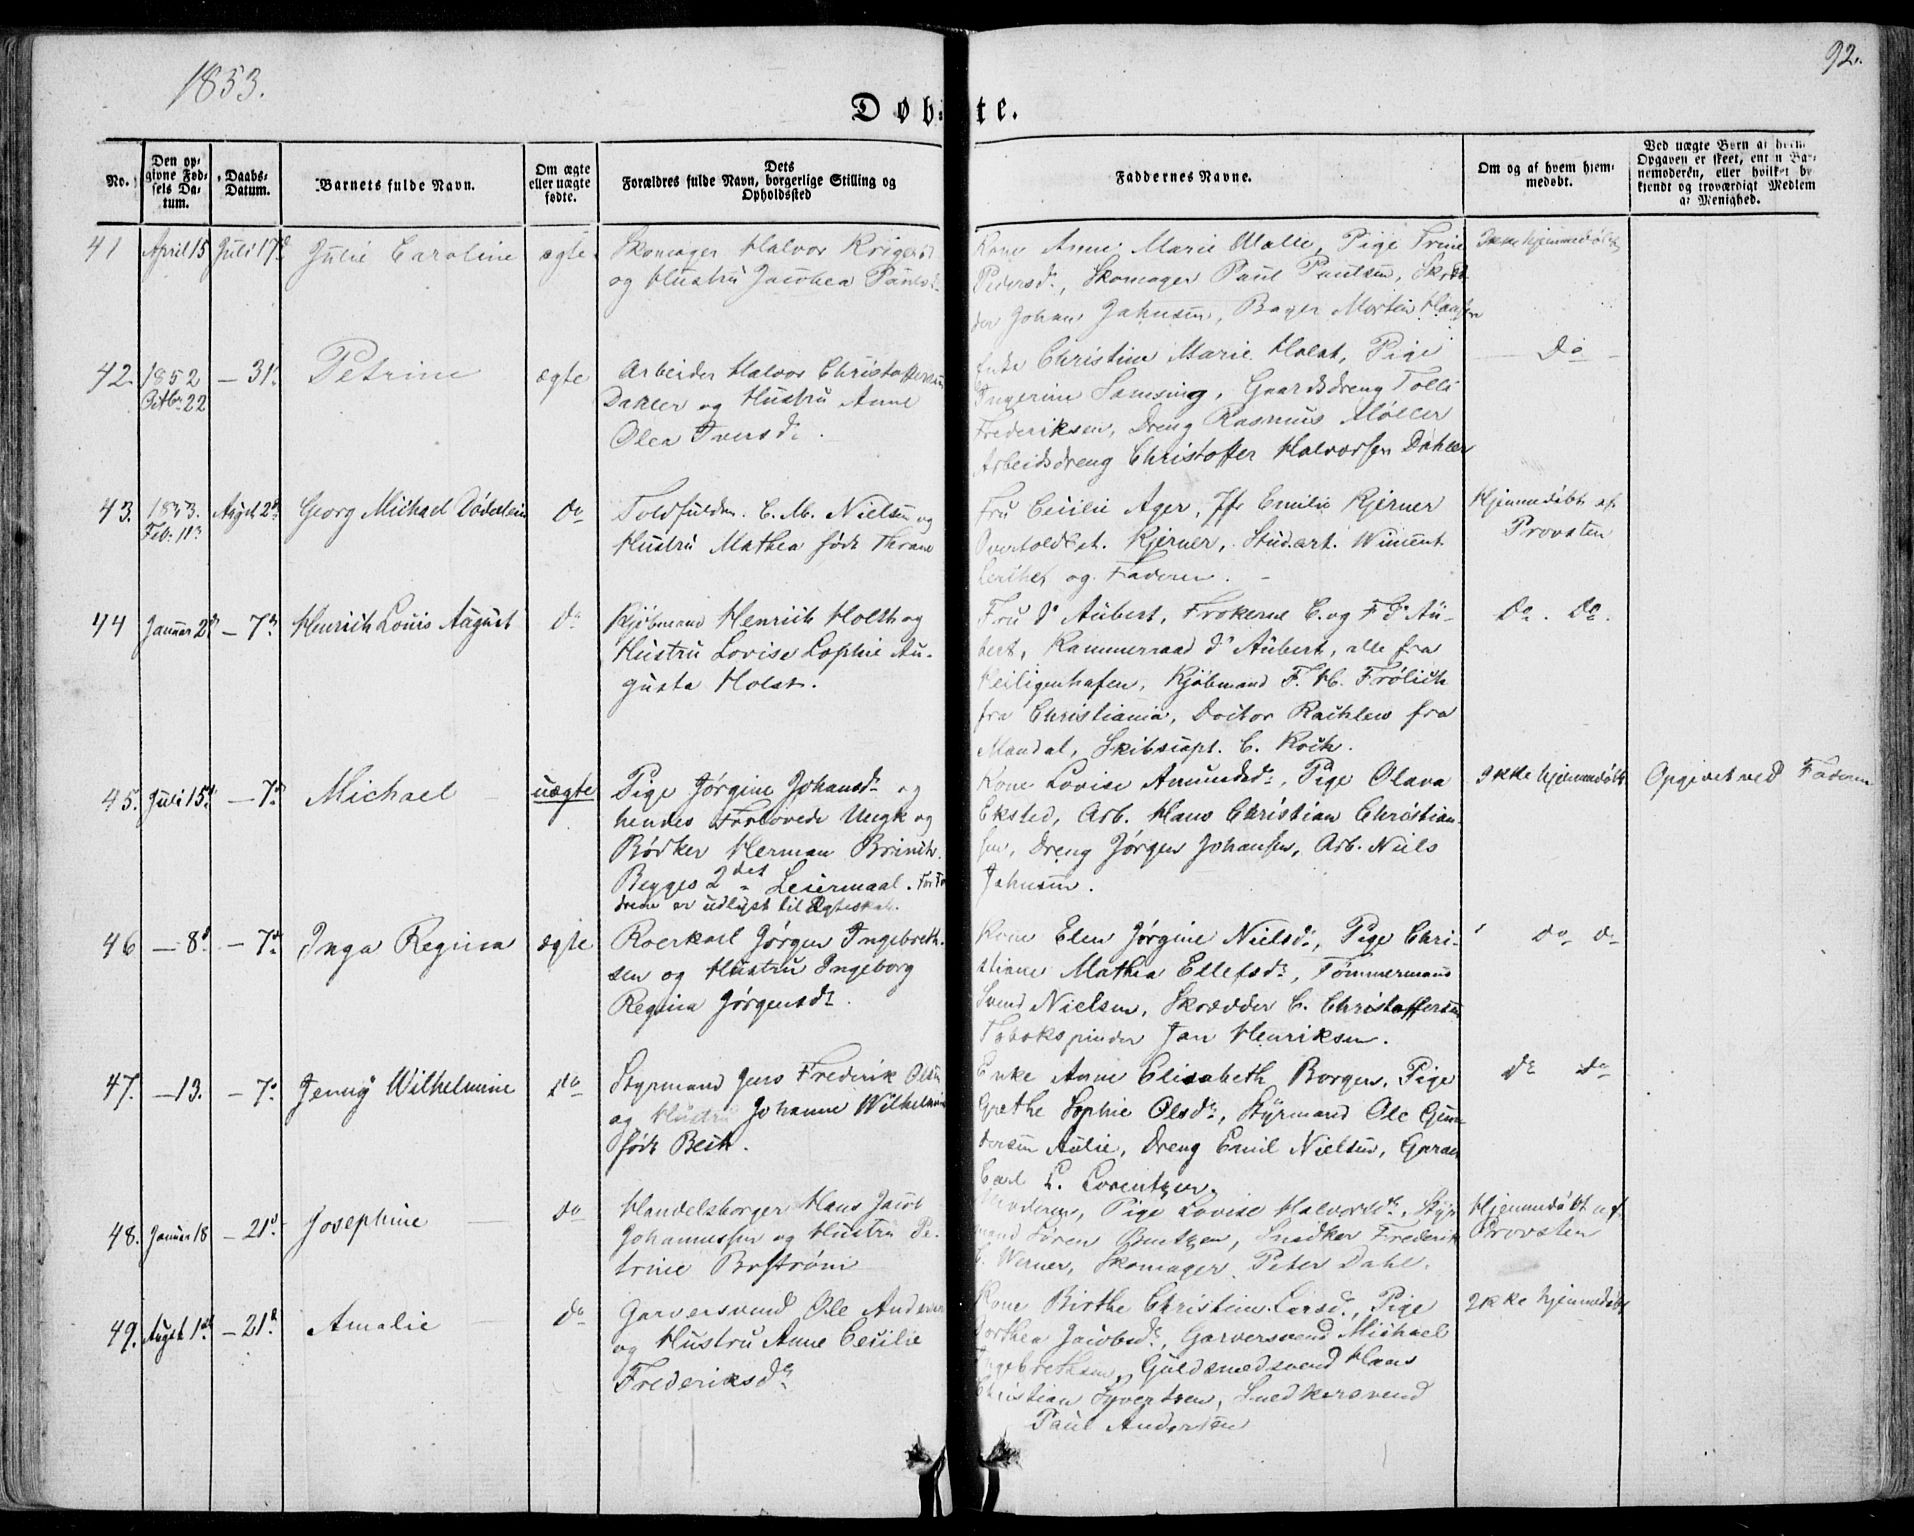 1853.
92.
Døb:te.
No.
Den opgivne Fødsels Datum.
Daabs-Datum.
Barnets fulde Navn.
Om ægte eller uægte fødte.
Dets Forældres fulde Navn, borgerlige Stilling og Opholdssted
Faddernes Navne.
Om og af hvem hjemmedøbt.
Ved uægte Børn af hvem Opgaven er skeet, enten Barnemoderen, eller hvilket bekiendt og troværdigt Medlem af Menighed.
41 April 15 Juli 17d Julie Caroline ægte.
Skomager Halvor Krigers
og Hustru Jacobea Paulsd
Kone Anne Marie Malle, Pige Trine
Pedersd., Skomager Paul Paulsen, Skræd
der Johan Jahnsen, Bager Morten Hansen
Ikke hjemmedøbt
42. 1852 Octbr 22 – 31. Petrine ægte
Arbeider Halvor Christoffersen
Dahler og Hustru Anne
Olea Iversd.
Enke Christine Marie Holst, Pige
Ingerine Samsing, Gaardsdreng Tolle
Frederiksen, Dreng Rasmus Møller
Arbeidsdreng Christoffer Halvorsen Dahler
Do
43. 1853. Feb. 11 Augst 2d Georg Michael Døderlein do
Toldfuldm. C. M. Nielsen og
Hustru Mathea født Thrane
Fru Cecilie Ager, Jfr Emilie Kjerner
Overtoldbet. Kjerner, Stud. art. Wincent
og Faderen.
Hjemmedøbt af
Provsten
44 Januar 2d – 7d Henrich Louis August do
Kjøbmand Henrich Holst og
Hustru Lovise Sophie Au-
gusta Holst.
Fru d'Aubert, Frøkerne C. og F. d'Au-
bert, Kammerraad d'Aubert, alle fra
Heiligenhafen, Kjøbmand F. H. Frølich
fra Christiania, Doctor Rachlew fra
Mandal, Skibscapt. C. Koch.
Do. Do.
45. Juli 15d – 7d Michael uægte
Pige Jørgine Johansd. og
hendes Forlovede Ungk og
Bødker Herman Brinch.
Begges 2det Leiermaal. Foræl
drene er udlyst til Ægteskab.
Kone Lovise Amundsd., Pige Olava
Eksted, Arb. Hans Christian Christian-
sen, Dreng Jørgen Johansen, Arb. Niels
Jahnsen.
Ikke hjemmedøbt
Opgivet ved Faderen
46 – 8d – 7d Inga Regina ægte
Roerkarl Jørgen Ingebreth-
sen og Hustru Ingeborg
Regina Jørgensd.
Kone Elen Jørgine Nielsd., Pige Chri-
stiane Mathea Ellefsd., Tømmermand
Svend Nielsen, Skrædder C. Christoffersen
Tobakspinder Jan Henriksen.
do do
47. – 13. – 7. Jenny Wilhelmine do
Styrmand Jens Frederik Olsen
og Hustru Johanne Wilhelmine
født Beck.
Enke Anne Elisabeth Borgen, Pige
Grethe Sophie Olsd., Styrmand Ole Gun-
dersen Aulie, Dreng Emil Nielsen,
Carl L. Lorentzen.
do do
48. Januar 18 – 21d Josephine do
Handelsborger Hans Jacob
Johannessen og Hustru Pe-
trine Bostrøm
Moderen, Pige Lovise Halvorsd., Styr
mand Søren Bentzen, Snedker Frederik
C. Werner, Skomager Peter Dahl.
Hjemmedøbt af
Provsten
49. Augst 1d – 21d Amalie do
Garversvend Ole Andersen
og Hustru Anne Cecilie
Frederiksd.
Kone Birthe Christine Larsd., Pige
Dorthea Jacobsd., Garversvend Michael
Ingebrethsen, Guldsmedsvend Hans
Christian Syvertsen, Snedkersvend
Paul Andersen
Ikke hjemmedøbt